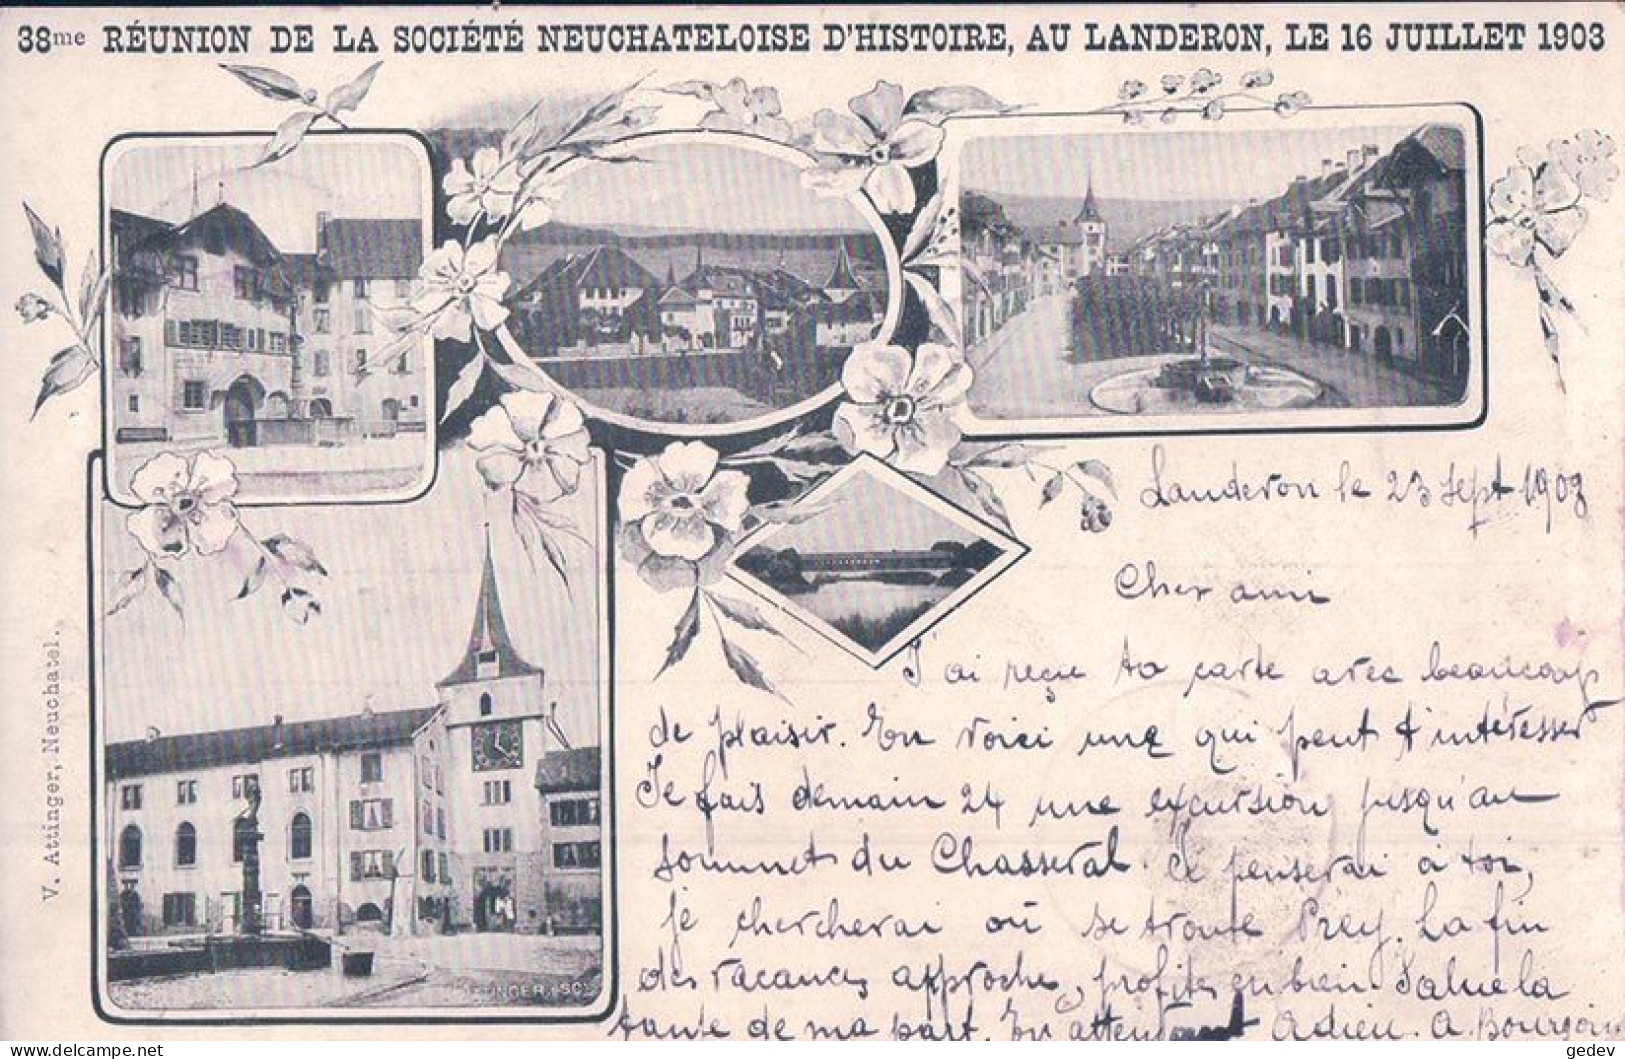 38me RÉUNION DE LA SOCIÉTÉ NEUCHATELOISE D'HISTOIRE, AU LANDERON, LE 16 JUILLET 1903
Landeron le 23 sept 1903
Cher ami
J'ai reçu ta carte avec beaucoup
de plaisir. En voici une qui peut t'intéresser
Je fais demain 24 une excursion jusqu'au
sommet du Chasseral. Je penserai à toi,
je chercherai où se trouve Prey. La fin
des vacances approche, profites en bien Salue la
tante de ma part. En attendant Adieu. A. Bourgoin
V. Attinger, Neuchatel.
ATTINGER. SC.
gedev